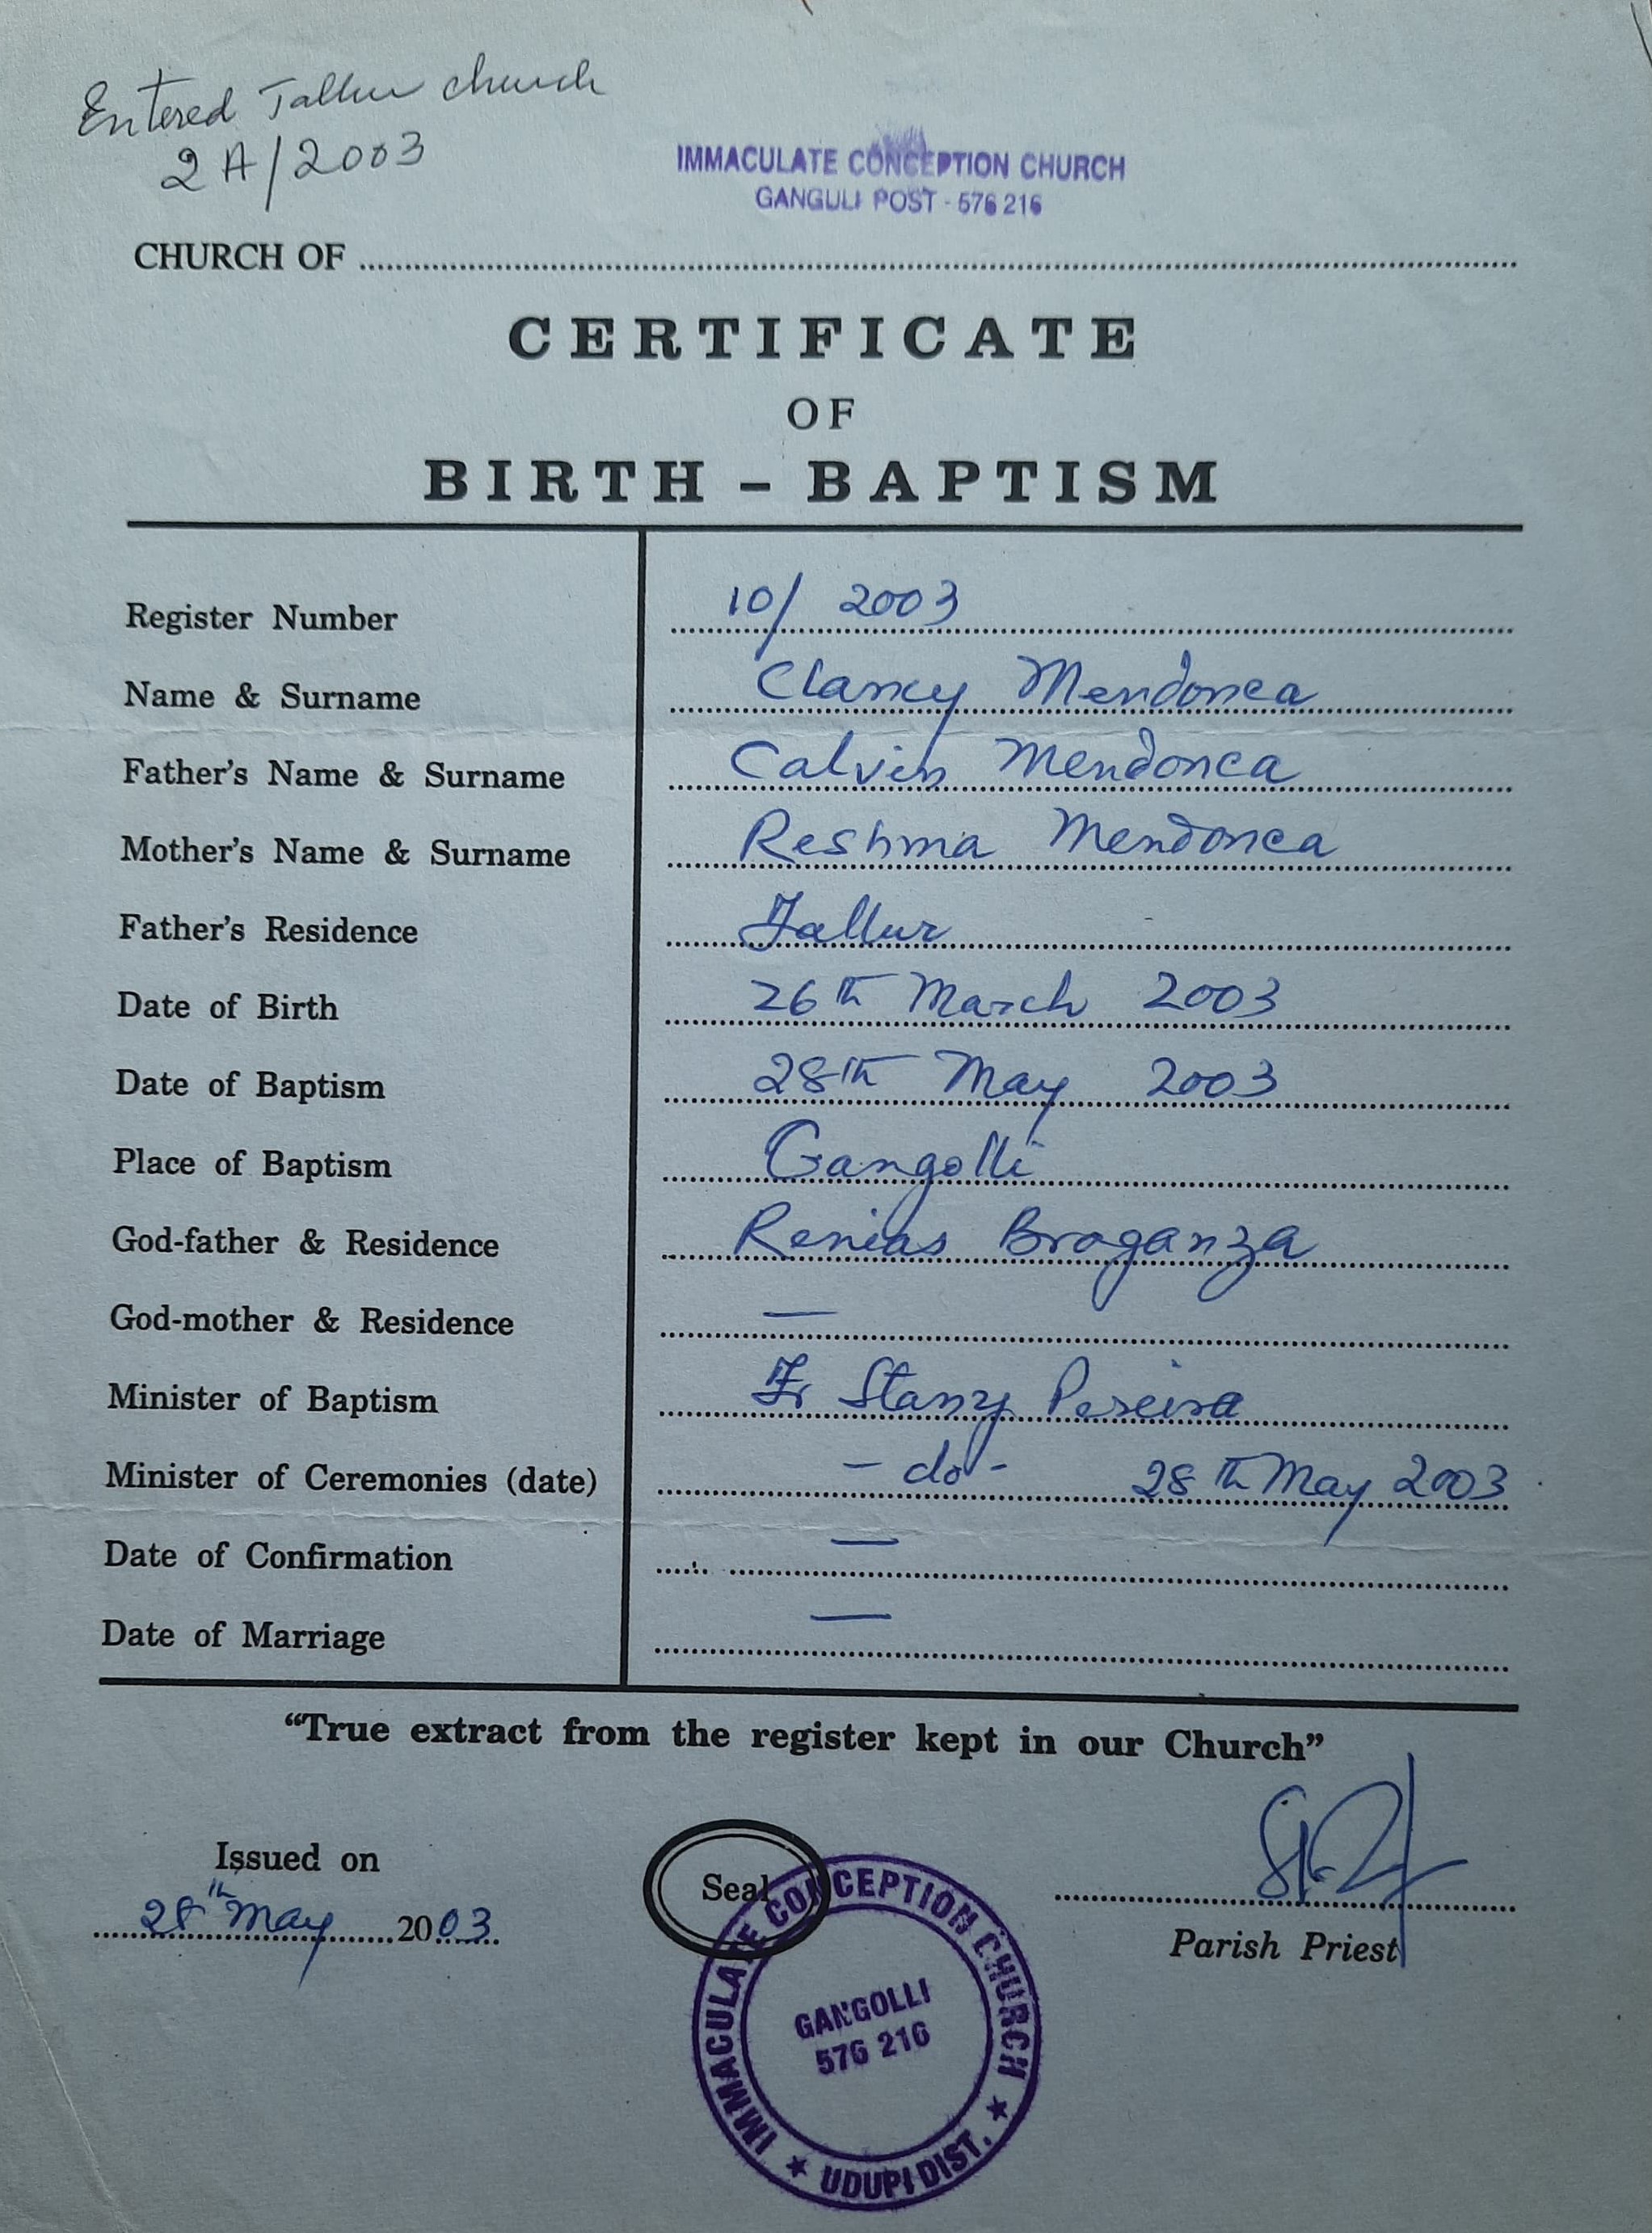 Entered Tallur church
2A/2003
IMMACULATE CONCEPTION CHURCH
GANGULI POST - 576 216
CHURCH OF
CERTIFICATE
OF
BIRTH - BAPTISM
Register Number 10/ 2003
Name & Surname Clancy Mendonca
Father's Name & Surname Calvin Mendonca
Mother's Name & Surname Reshma Mendonca
Father's Residence Tallur
Date of Birth 26th March 2003
Date of Baptism 28th May 2003
Place of Baptism Gangolli
God-father & Residence Renias Braganza
God-mother & Residence —
Minister of Baptism Fr Stany Pereira
Minister of Ceremonies (date) - do - 28th May 2003
Date of Confirmation —
Date of Marriage —
"True extract from the register kept in our Church"
Issued on
28th May 2003
Seal
Parish Priest
IMMACULATE CONCEPTION CHURCH
GANGOLLI
576 216
★ UDUPI DIST. ★